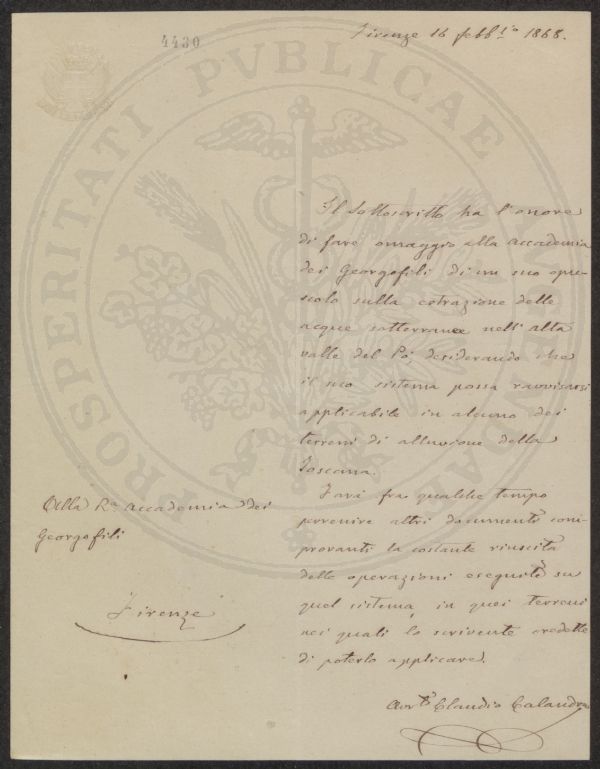 4430
Firenze 16 febb.io 1868.
PROSPERITATI PVBLICAE
Il Sottoscritto ha l'onore
di fare omaggio alla Accademia
dei Georgofili di un suo opu-
scolo sulla estrazione delle
acque sotterranee nell'alta
valle del Pò, desiderando che
il suo sistema possa ravvisarsi
applicabile in alcuno dei
terreni di alluvione della
Toscana.
Farà fra qualche tempo
pervenire altri documenti com-
provanti la costante riuscita
delle operazioni eseguite su
quel sistema, in quei terreni
nei quali lo scrivente credette
di poterlo applicare.
Alla R.a Accademia dei
Georgofili
Firenze
Claudio Calandra